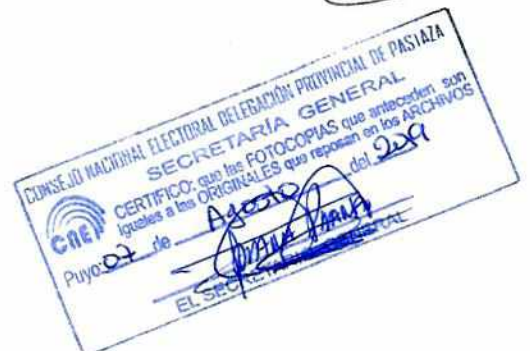 CONSEJO NACIONAL ELECTORAL DELEGACIÓN PROVINCIAL DE PASTAZA
SECRETARÍA GENERAL
CERTIFICO: que las FOTOCOPIAS que anteceden son
iguales a los ORIGINALES que reposan en los ARCHIVOS
CNE
Puyo: 07 de Agosto del 2019
EL SECRETARIO GENERAL